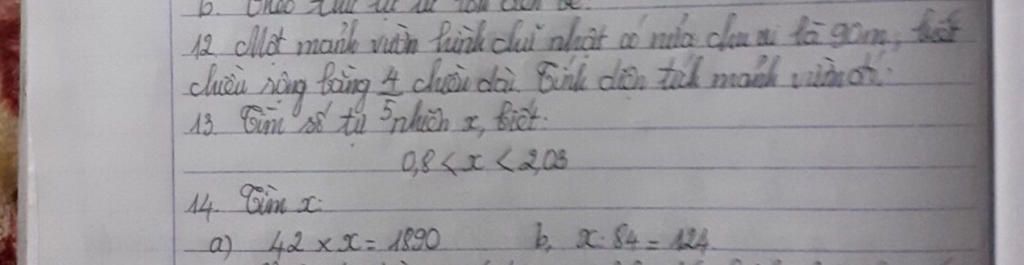 b. theo thứ tự từ lớn đến bé.
12. Một mảnh vườn hình chữ nhật có nửa chu vi là 90m, biết
chiều rộng bằng 4/5 chiều dài. Tính diện tích mảnh vườn đó.
13. Tìm số tự nhiên x, biết:
0,8 < x < 2,03
14. Tìm x:
a) 42 × x = 1890 b, x : 84 = 124